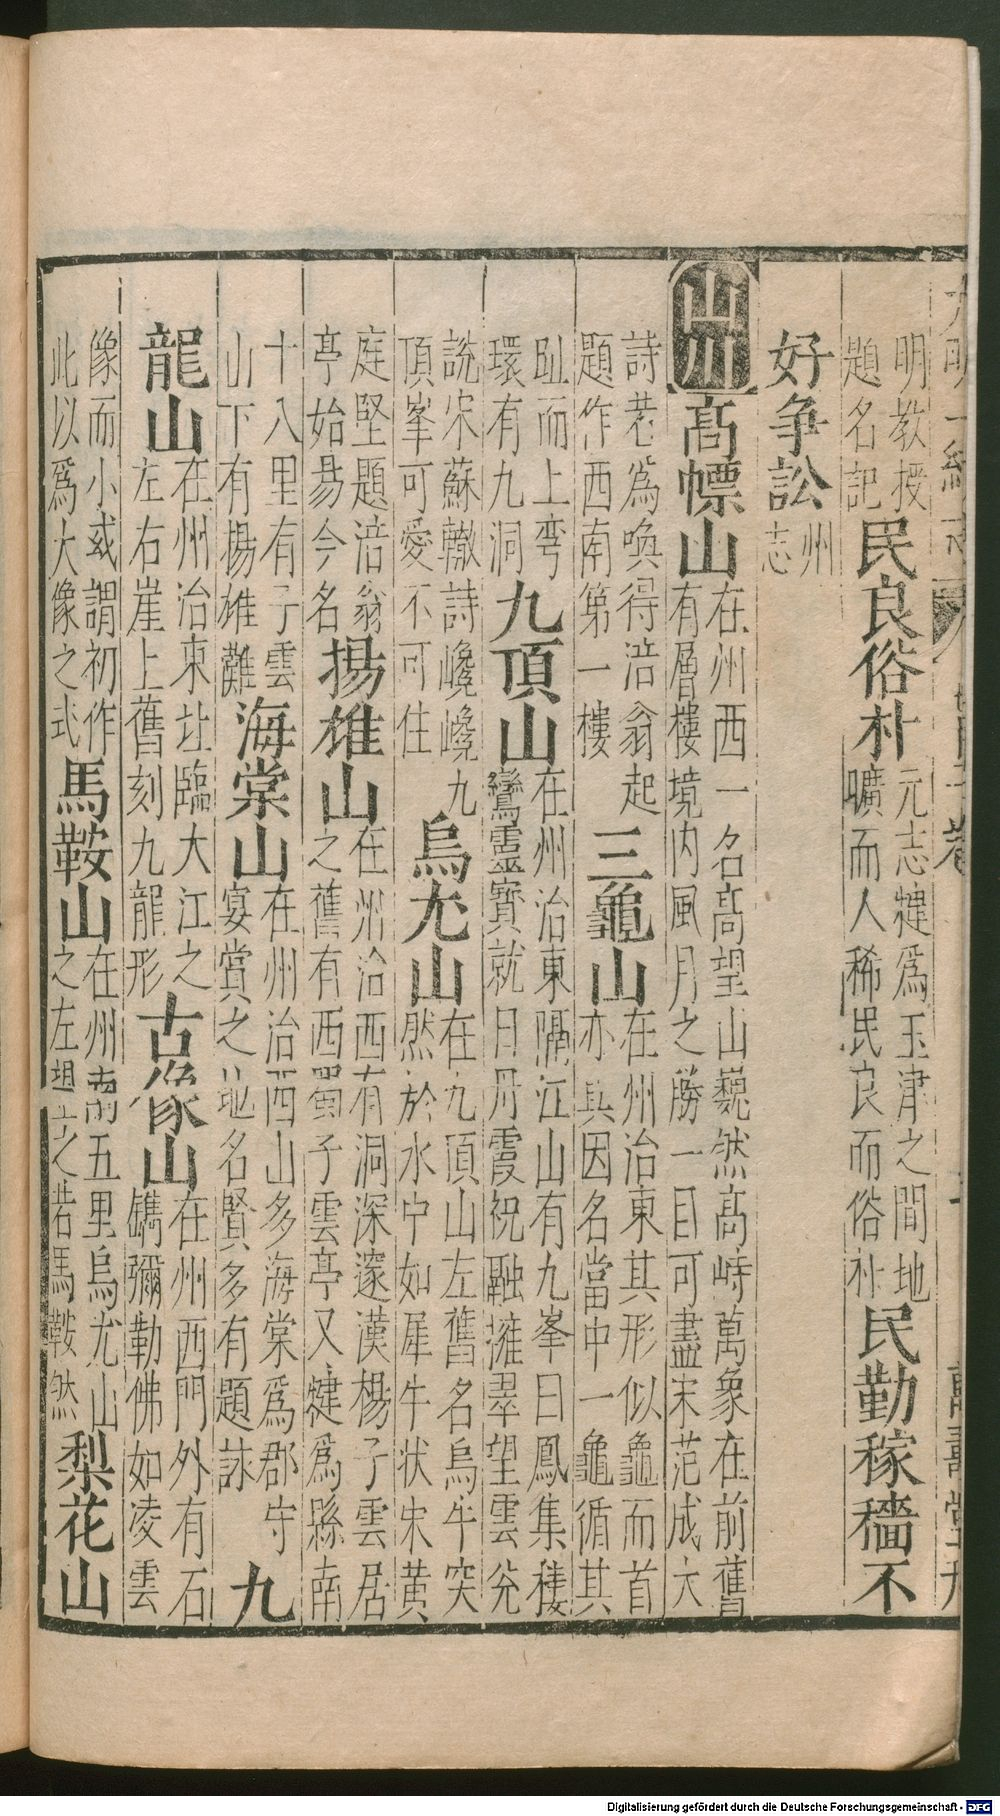 大明一統志
萬壽堂刊
明教授題名記 民良俗朴 元志犍爲玉津之間地曠而人稀民良而俗朴 民勤稼穡不
好爭訟 州志
山川 高幖山 在州西一名高望山巍然高峙萬象在前舊有層樓境内風月之勝一目可盡宋范成大
詩若爲喚得涪翁起題作西南第一樓 三龜山 在州治東其形似龜而首亦具因名當中一龜循其
趾而上弯環有九洞 九頂山 在州治東隔江山有九峯曰鳳集棲鸞靈寳就日丹霞祝融擁翠望雲兊
說宋蘇轍詩巉巉九頂峯可愛不可住 烏尤山 在九頂山左舊名烏牛突然於水中如犀牛状宋黄
庭堅題涪翁亭始昜今名 揚雄山 在州治西有洞深邃漢楊子雲居之舊有西蜀子雲亭又犍爲縣南
十八里有子雲山下有楊雄灘 海棠山 在州治西山多海棠爲郡守宴賞之地名賢多有題詠 九
龍山 在州治東址臨大江之左右崖上舊刻九龍形 古像山 在州西門外有石鐫彌勒佛如凌雲
像而小或謂初作此以爲大像之式 馬鞍山 在州南五里烏尤山之左望之若馬鞍然 梨花山
Digitalisierung gefördert durch die Deutsche Forschungsgemeinschaft - DFG